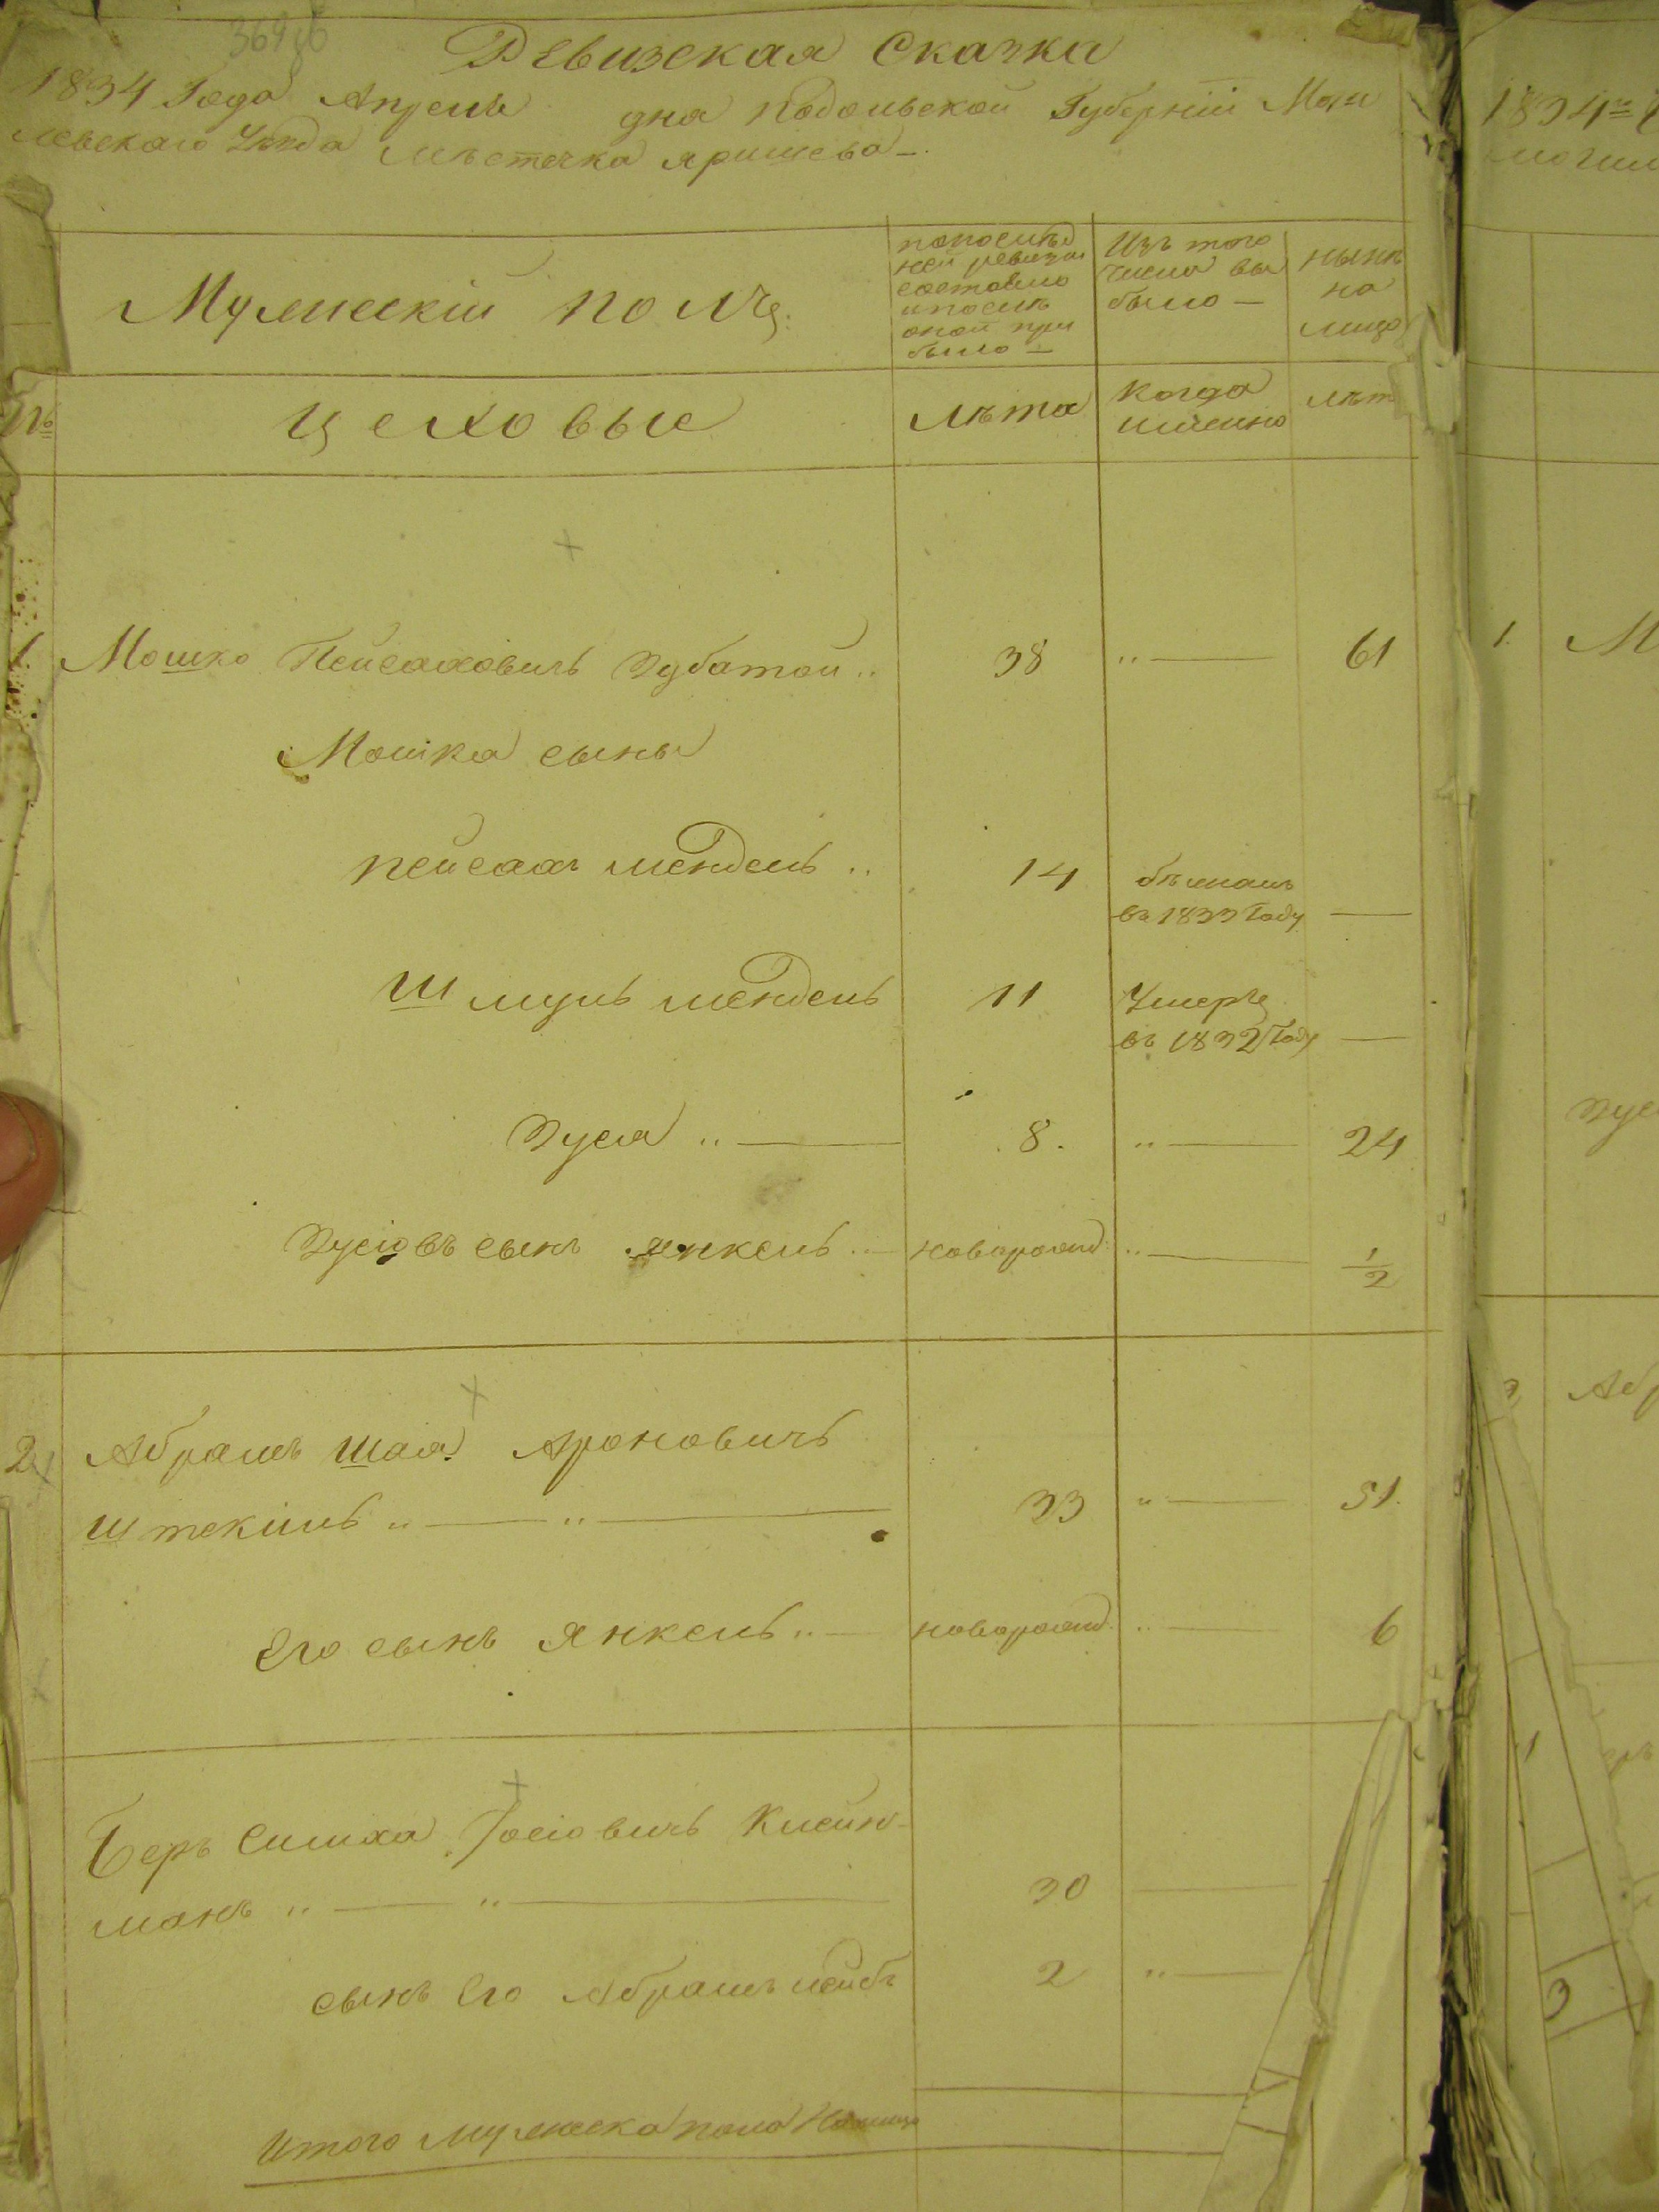 369 об
Ревизская Сказка
1834 Года Апреля дня Подольской Губерніи Моги
левскаго Уѣзда мѣстечка Яришева
Мужескій полъ
по послѣд
ней ревизіи
состояло
и послѣ
оной при
было
Изъ того
числа вы
было
нынѣ
на
лицо
№
Цеховые
лѣта
когда
именно
лѣт
1. Мошко Пейсаховичъ Зубатой 38 61
Мошка сыны
Пейсахъ Мендель 14 бѣжалъ
въ 1833 Году
Шмуль Мендель 11 Умеръ
въ 1832 Году
Зуся 8 24
Зусіовъ сынъ Янкель новорожд 1/2
2 Абрамъ Шая Ароновичъ
Штекель 33 51
Его сынъ Янкель новорожд 6
Беръ Симха Іосіовичъ Клейн-
манъ 30
сынъ Его Абрамъ Лейбъ 2
Итого мужеска пола На лицо
1834 г
могил
1. М
Зус
2 Абр
1
3